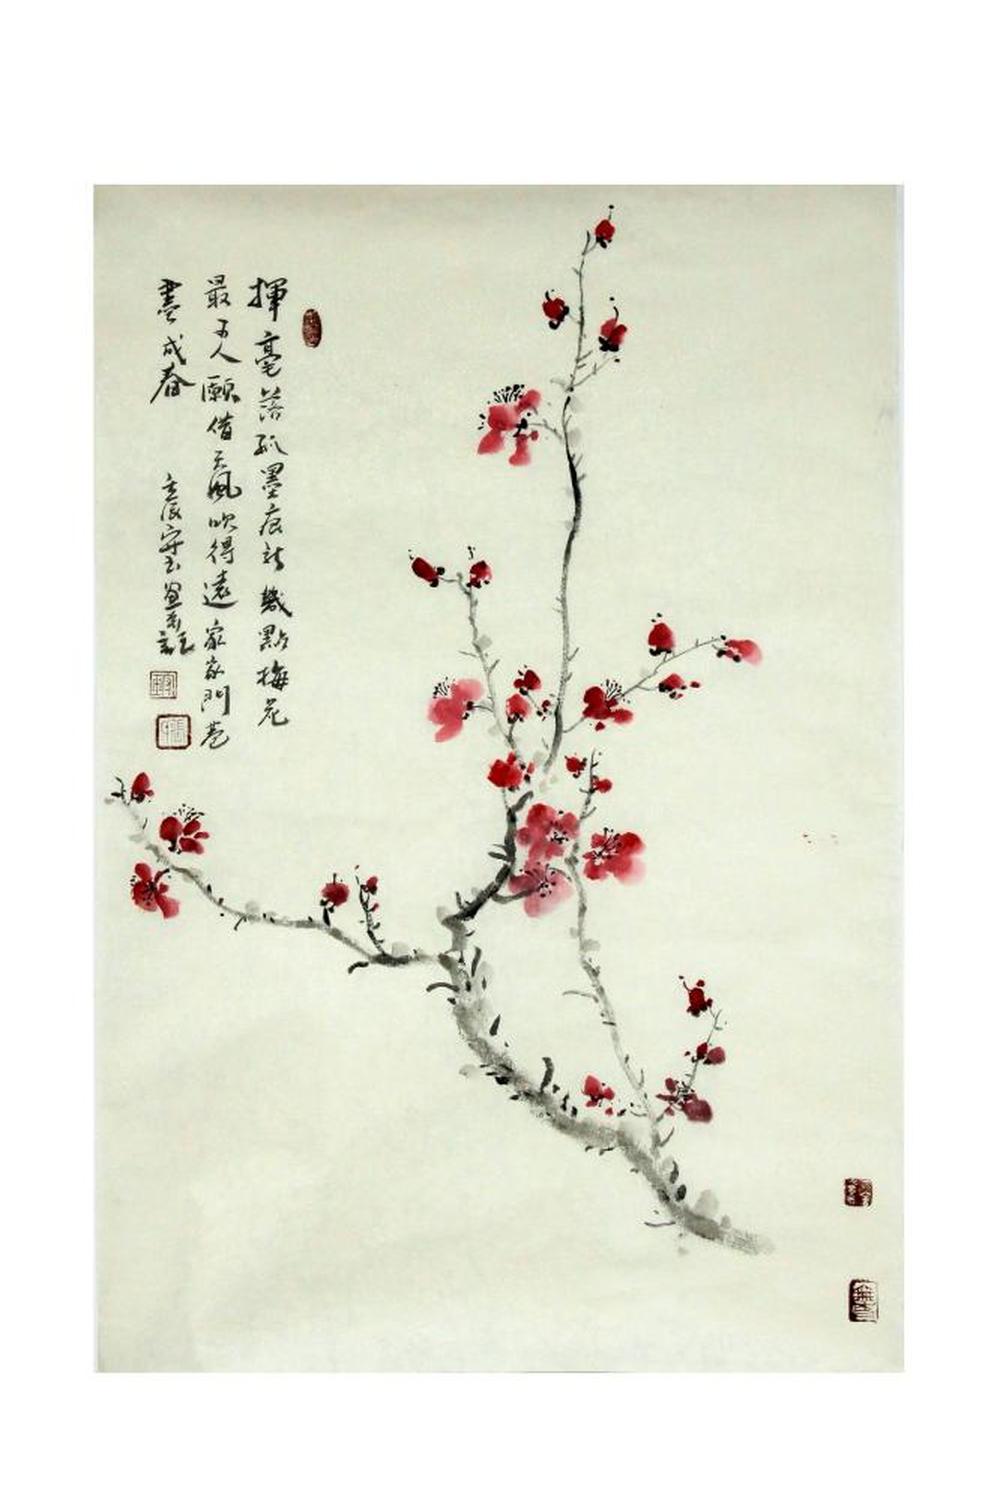 揮毫落紙墨痕新幾點梅花
最可人願借天風吹得遠家家門巷
盡成春
壬辰守玉畫並記